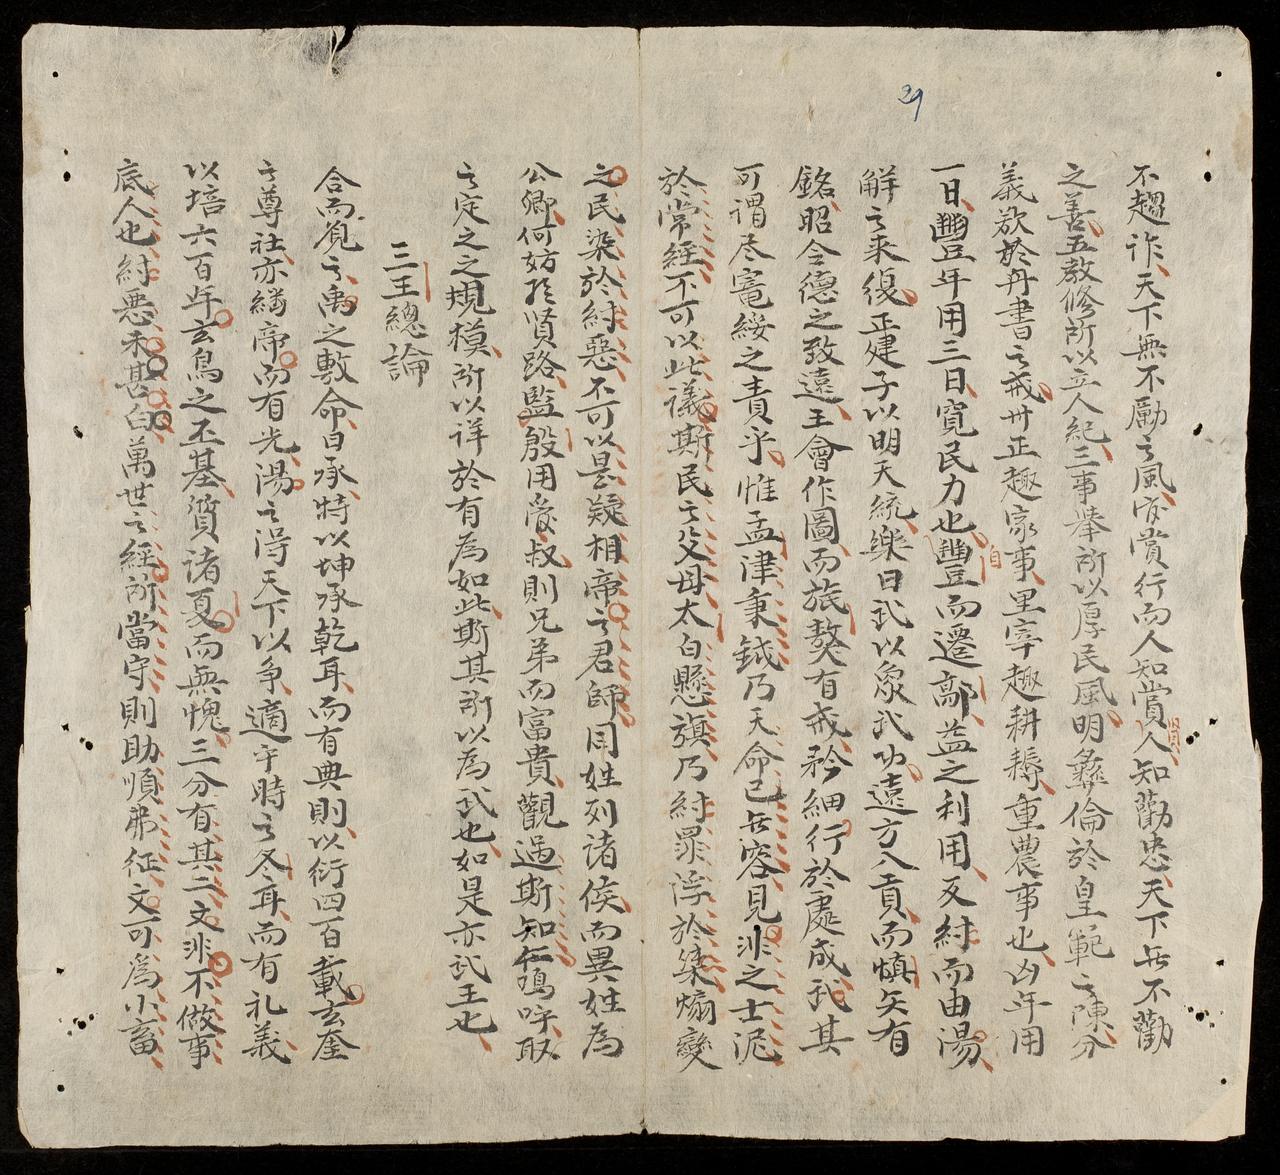 29
不趨詐天下無不勵之風賞行而人知賞人知勸忠天下無不勸
之善五教修所以立人紀三事舉所以厚民風明彝倫於皇範之陳分
義欽於丹書之戒丗正趣家事里宰趣耕耨重農事也凶年用
一日豐年用三日寬民力也豐而遷鄗益之利用反紂而由湯
觧之来復正建子以明天統樂曰武以象武功遠方入貢而慎矢有
銘昭令德之致遠王會作圖而旅獒有戒矜細行於處成武其
可謂尽寵綏之責乎惟孟津秉鉞乃天命已無容見非之士泥
於常經不可以此議斯民之父母太白懸旗乃紂罪浮於桀煽變
之民染於紂惡不可以是疑相帝之君師同姓列諸侯而異姓為
公卿何妨於賢路監殷用庶叔則兄弟而富貴觀過斯知仁嗚呼取
之定之之規模所以详於有為如此斯其所以為武也如是亦武王也
三王總論
合而覌之禹之敷命曰承特以坤承乾耳而有典則以衍四百載玄奎
之尊社亦繙帝而有光湯之淂天下以争適乎時之冬耳而有礼義
以培六百年玄鳥之丕基質诸夏而無愧三分有其二文非不做事
底人也紂惡未甚白萬世之經所當守則助順弗征文可為小畜